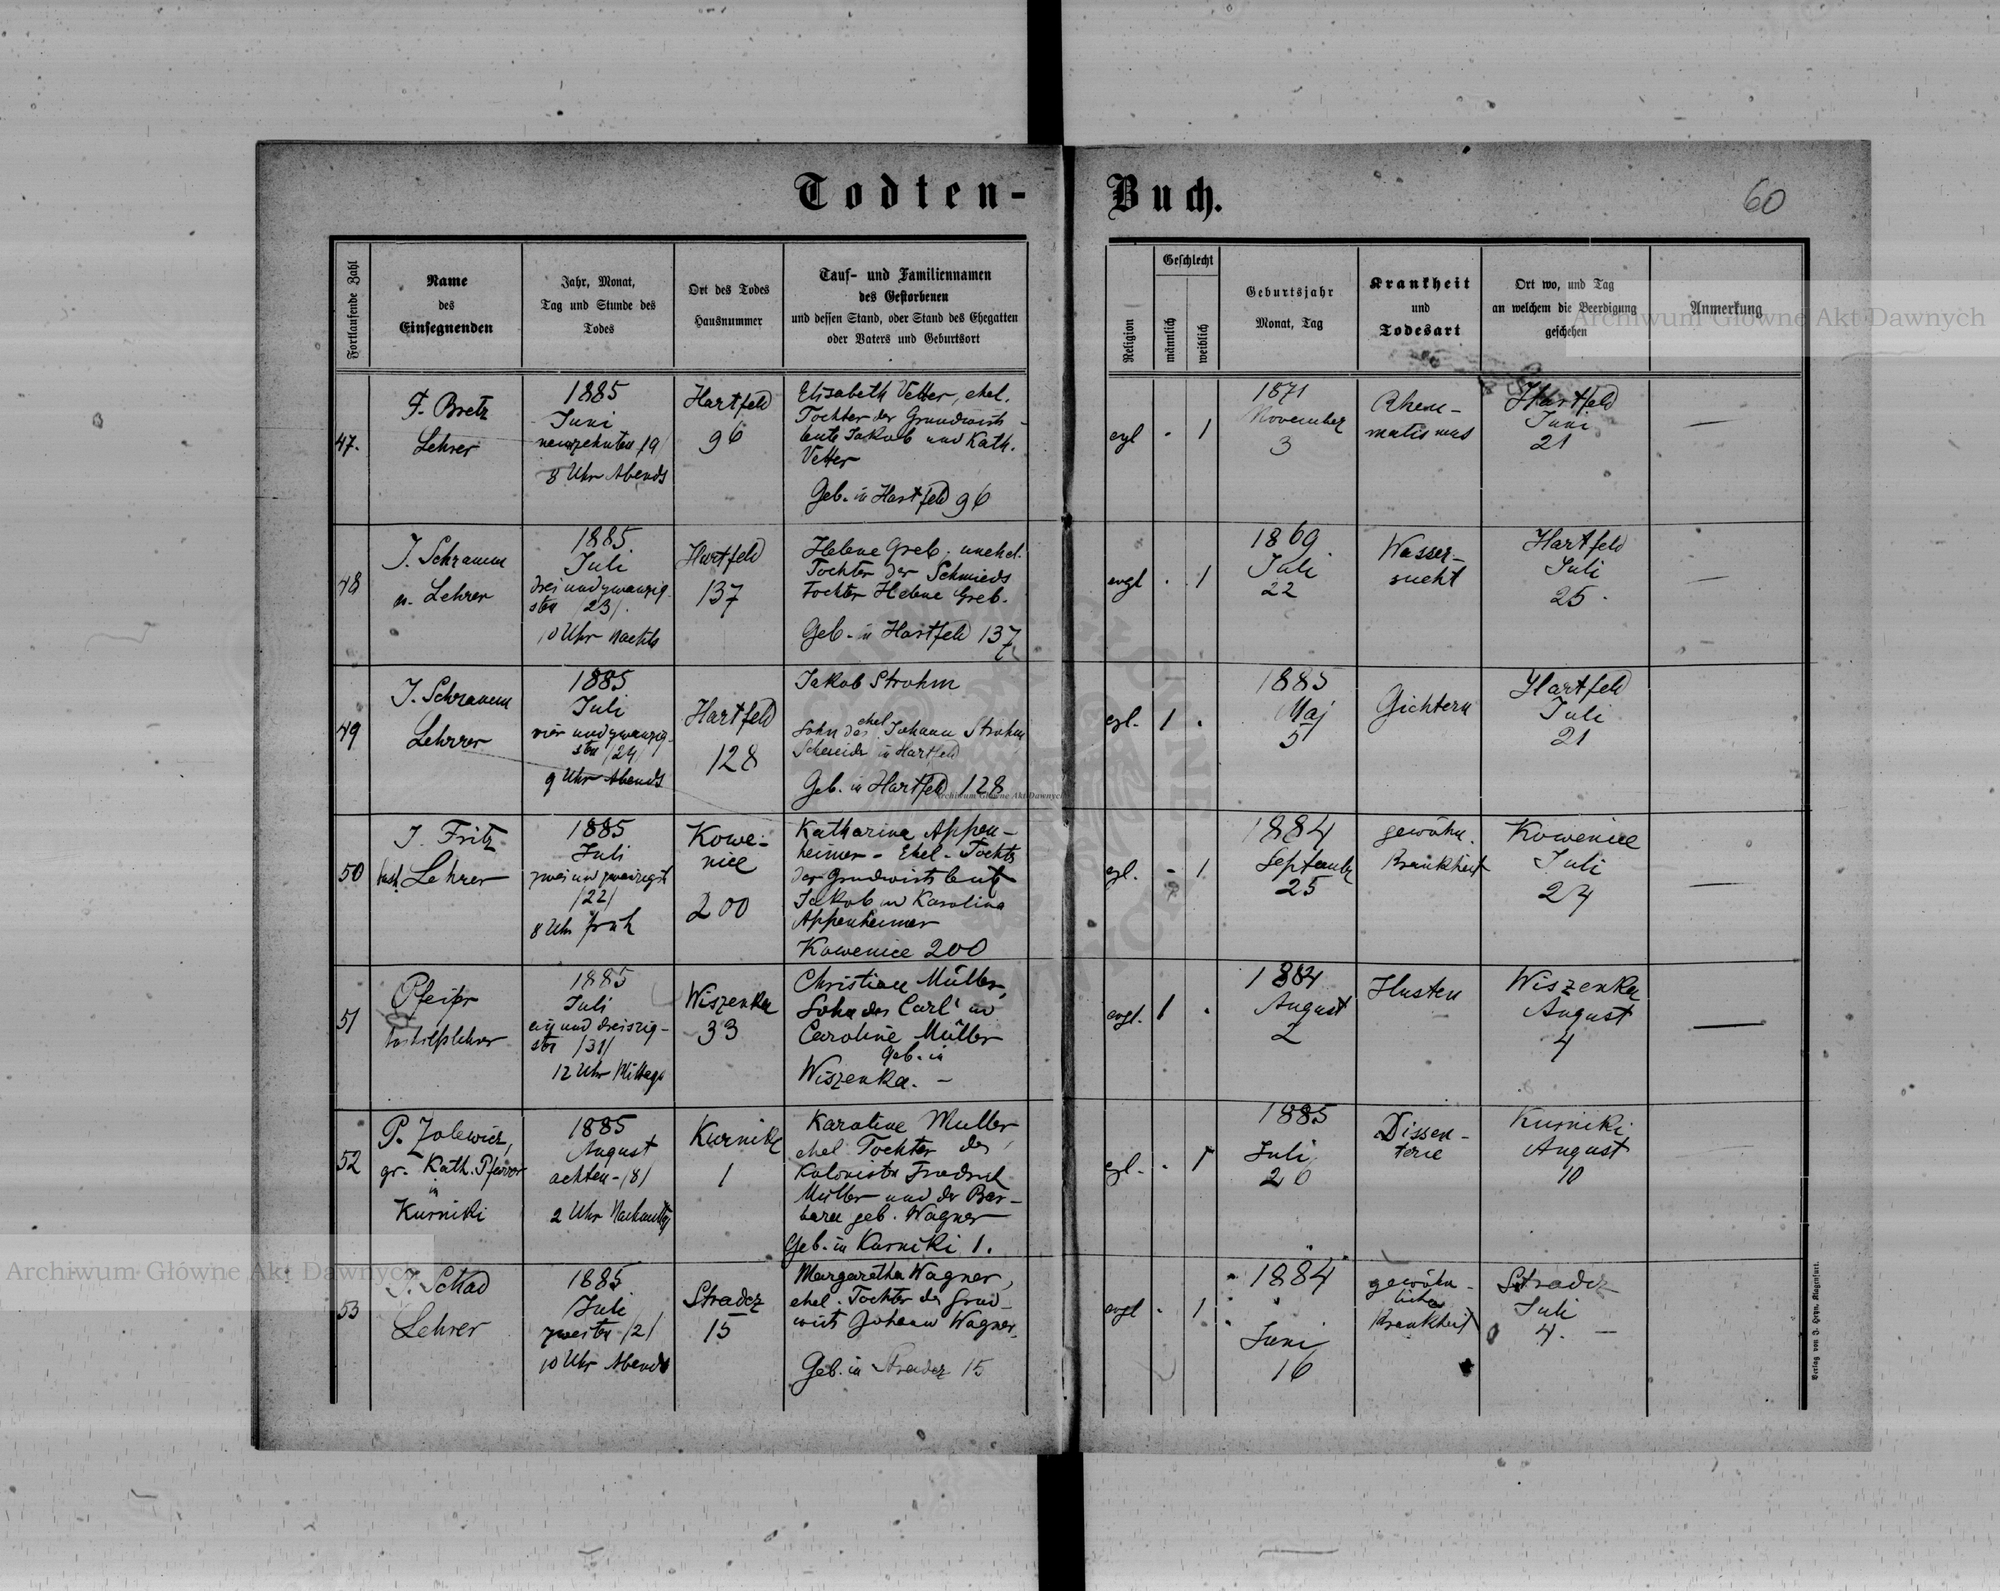 Todten-Buch.
60
Fortlaufende Zahl
Name
des
Einsegnenden
Jahr, Monat,
Tag und Stunde des
Todes
Ort des Todes
Hausnummer
Tauf- und Familiennamen
des Gestorbenen
und dessen Stand, oder Stand des Ehegatten
oder Vaters und Geburtsort
Religion
Geschlecht
männlich
weiblich
Geburtsjahr
Monat, Tag
Krankheit
und
Todesart
Ort wo, und Tag
an welchem die Beerdigung
geschehen
Anmerkung
47.
Bretz
Lehrer
1885
Juni
neunzehnten /19/
8 Uhr Abends
Hartfeld
96
Elisabeth Vetter, ehel.
Tochter der Grundwirts-
leute Jakob und Kath.
Vetter
Geb. in Hartfeld 96
evgl - 1
1871
November
3
Rheu-
matismus
Hartfeld
Juni
21
—
48
J. Schramm
Lehrer
1885
Juli
drei und zwanzig-
sten /23/.
10 Uhr Nachts
Hartfeld
137
Helene Greb, unehel.
Tochter der Schmieds
Tochter Helene Greb.
Geb. in Hartfeld 137
evgl . 1
1869
Juli
22
Wasser-
sucht
Hartfeld
Juli
25.
—
49
J. Schramm
Lehrer
1885
Juli
vier und zwanzig-
sten /24/
9 Uhr Abends
Hartfeld
128
Jakob Strohm
ehel.
Sohn des Johann Strohm
Schneider in Hartfeld
Geb. in Hartfeld 128
egl. 1 .
1885
Maj
5
Gichtern
Hartfeld
Juli
21
50
J. Fritz
Lehrer
1885
Juli
zwei und zwanzigst
/22/
8 Uhr früh
Kowe-
nice
200
Katharina Appen-
heimer - Ehel. Tochter
der Grundwirtsleute
Jakob u Karolina
Appenheimer
Kowenice 200
egl. - 1
1884
September
25
gewöhn.
Krankheit
Kowenice
Juli
24
—
51
Pfeifer
1885
Juli
ein und dreiszig-
ster /31/
12 Uhr Mittags
Wiszenka
33
Christian Müller,
Sohn des Carl u
Caroline Müller
Geb. in
Wiszenka. -
evgl. 1 .
1884
August
2
Husten
Wiszenka
August
4
—
52
P. Zolewicz,
gr. Kath. Pfarrer
in
Kurniki
1885
August
achten - /8/
2 Uhr Nachmittg
Kurniki
1
Karoline Muller
ehel. Tochter des
Kolonisten Friedrich
Müller und der Bar-
bara geb. Wagner
Geb. in Kurniki 1.
egl. . 1
1885
Juli
26
Dissen-
terie
Kurniki
August
10
53
J. Schad
Lehrer
1885
Juli
zweiten /2/
10 Uhr Abends
Stradcz
15
Margaretha Wagner,
ehel. Tochter des Grund-
wirts Johann Wagner.
Geb. in Stradcz 15
evgl . 1
1884
Juni
16
gewöhn-
liche
Krankheit
Stradcz
Juli
4. —
Verlag von J. Heyn, Klagenfurt.
Archiwum Główne Akt Dawnych
Archiwum Główne Akt Dawnych
Archiwum Główne Akt Dawnych